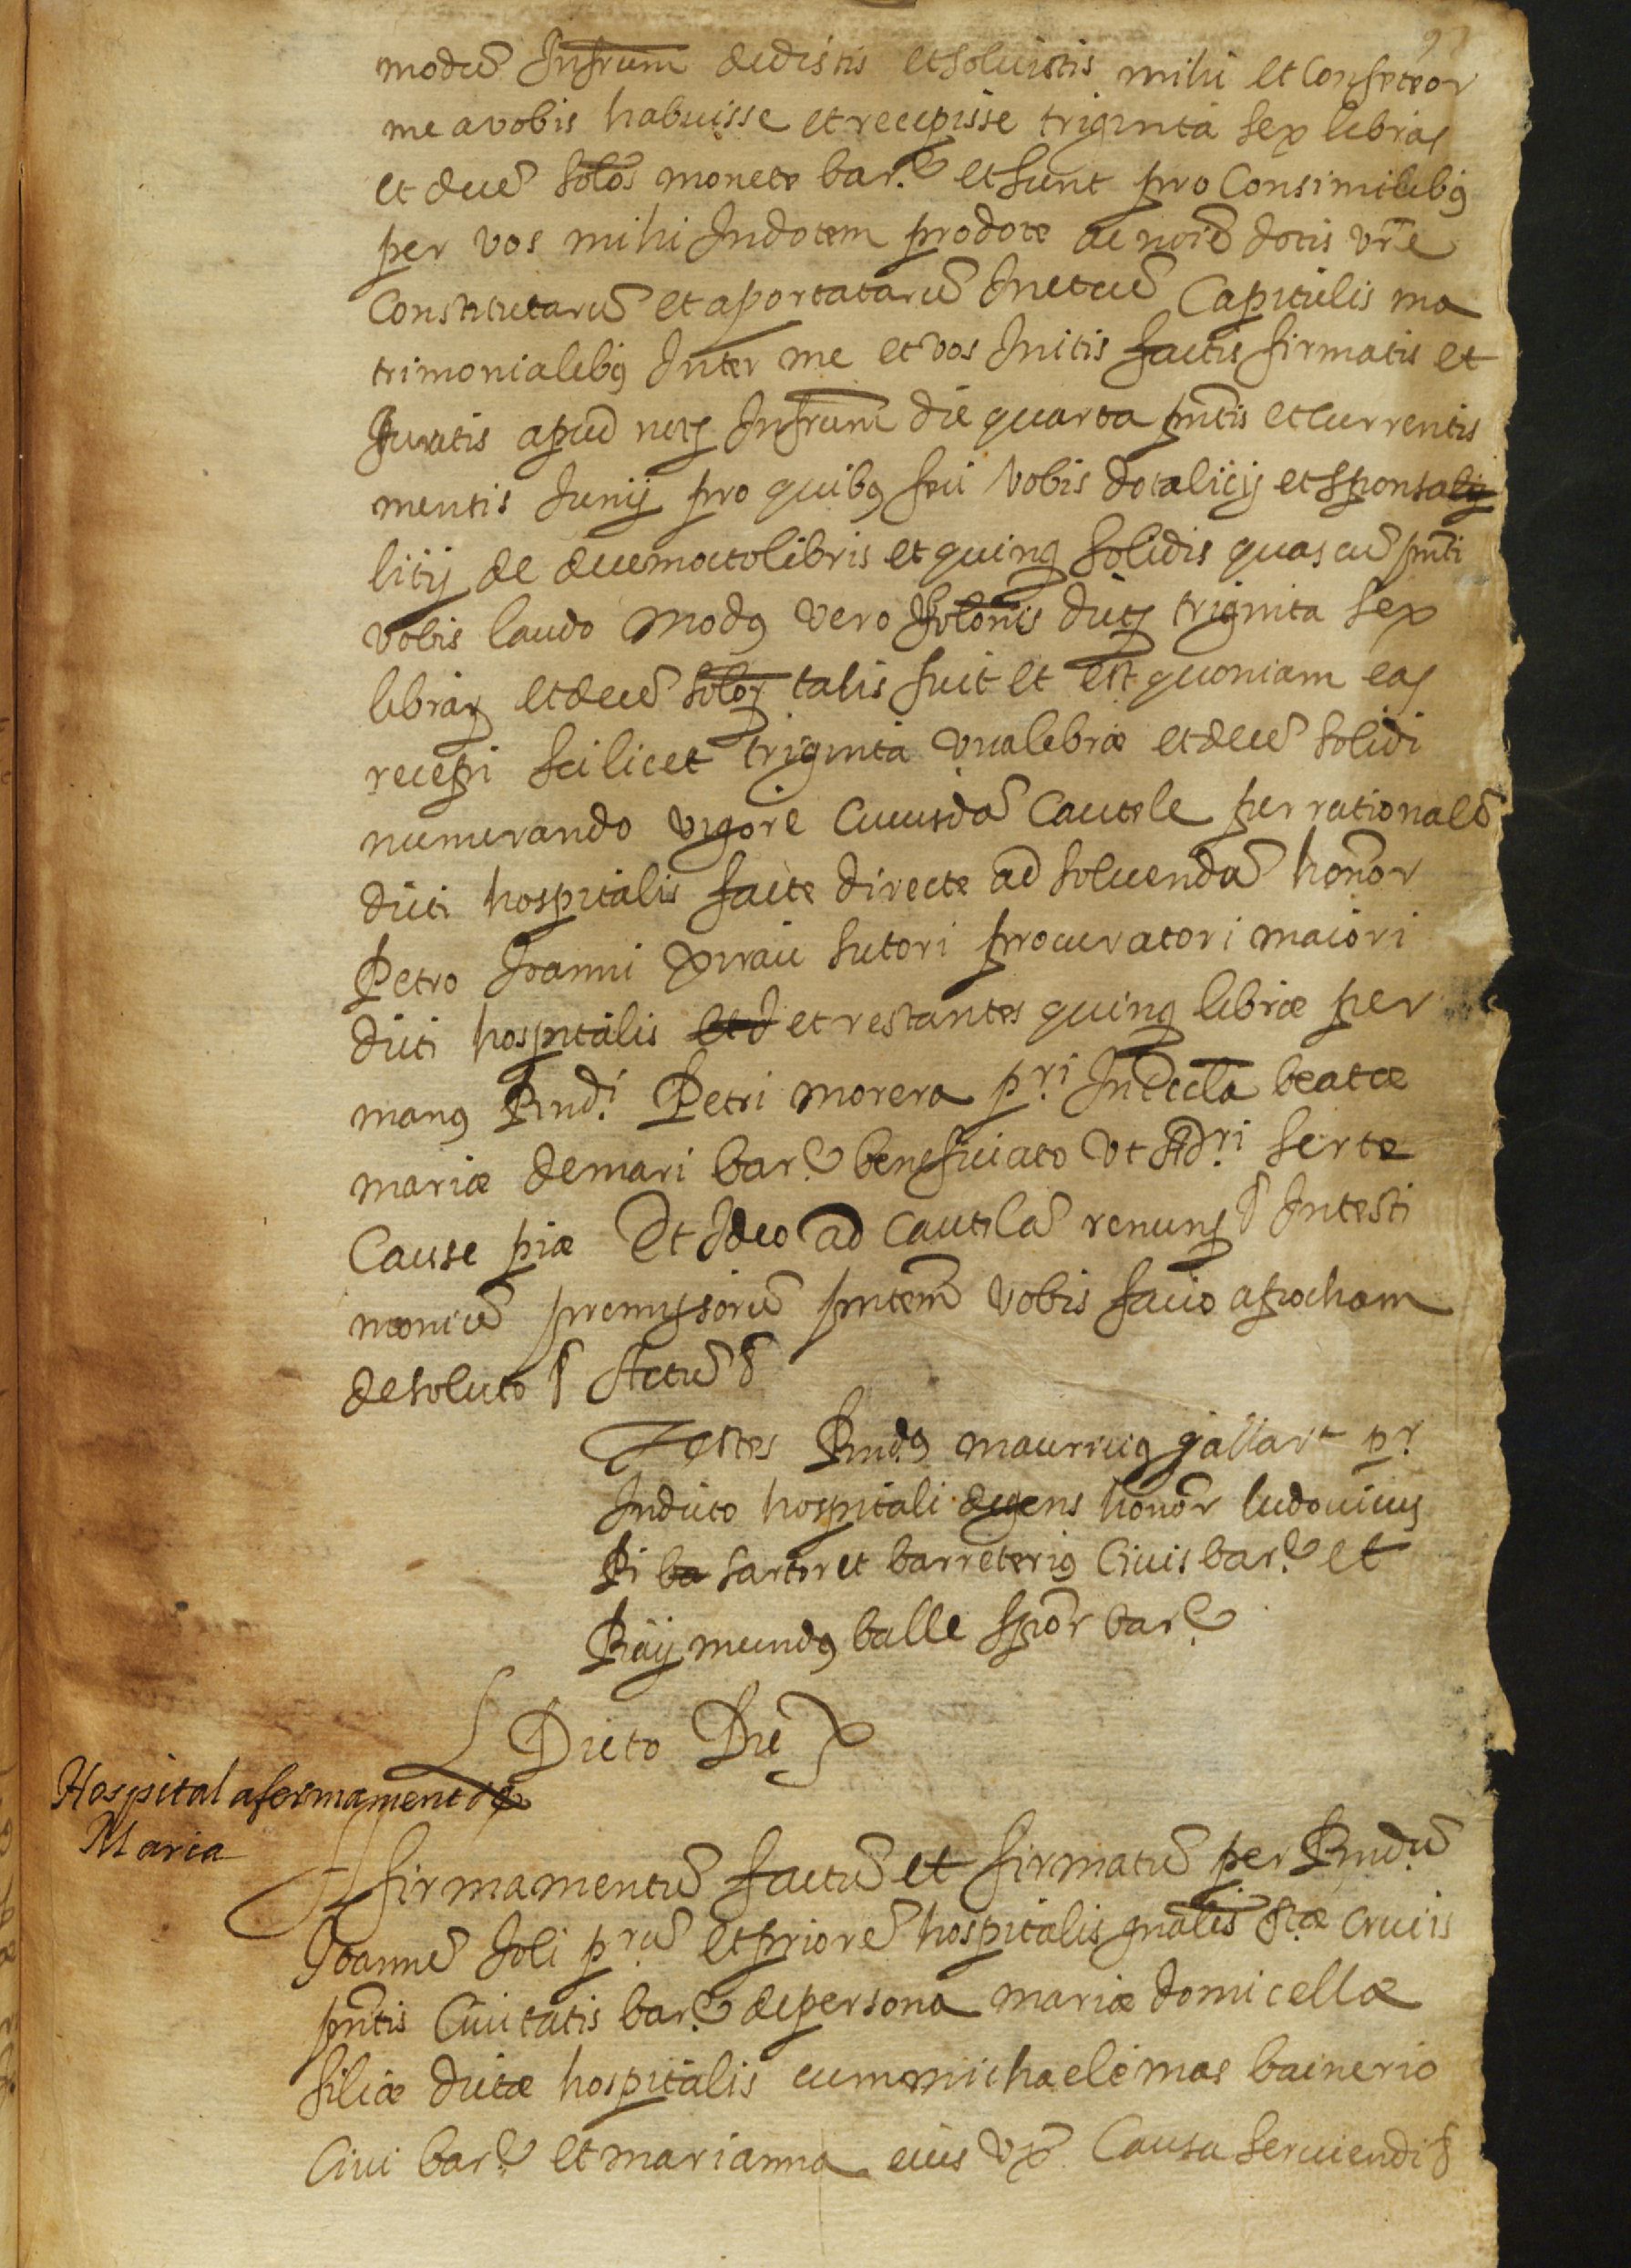 97
modũ Infrum dedistis et soluistis mihi et Confiteor
me a vobis habuisse et recepisse triginta sex libras
et decẽ solos monete barẽ et sunt pro Consimilibꝰ
per vos mihi In dotem pro dote ac noiẽ dotis vrẽ
Constitutarũ et aportatarũ In et cũ Capitulis ma
trimonialibꝰ Inter me et vos Initis factis firmatis et
Juratis apud notꝫ Infrum die quarta pñtis et currentis
mensis Junij pro quibꝰ feci vobis dotalicij et sponsalij
litij de decem octo libris et quinqꝫ solidis quas cũ pñti
vobis laudo Modꝰ vero solonis dictꝫ triginta sex
librarꝫ et decẽ solorꝫ talis fuit et est quoniam eas
recepi scilicet triginta una libræ et decẽ solidi
numerando vigore Cuiusdã Cautele per rationalẽ
dicti hospitalis facte directe ad soluendã honor
Petro Joanni sutori procuratori maiori
dicti hospitalis et d et restantes quinqꝫ libræ per
manꝰ Rndi Petri morera pri In Eccla beatæ
mariæ de mari barẽ beneficiato ut Adri serte
Cause piæ Et Ideo ad Cautelã renunꝫ & In testi
moniũ premissorũ pñtem vobis facio apocham
de soluto & Actũ &
Testes Rndꝰ mauriciꝰ gallart pr
In dicto hospitali degens honor ludouicus
Pi ba sartor et barreteriꝰ Ciuis barẽ et
Raymundꝰ balle spor barẽ
Dicto Die
Hospital afermament de
Maria
Affirmamentũ factũ et firmatũ per Rndũ
Joannẽ soli prũ et priorẽ hospitalis gnalis Stæ Crucis
pñtis Ciuitatis barẽ de persona mariæ domicellæ
filiæ dictæ hospitalis cum michaele mas bainerio
Ciui barẽ et marianna eius vx. Causa seruiendi &